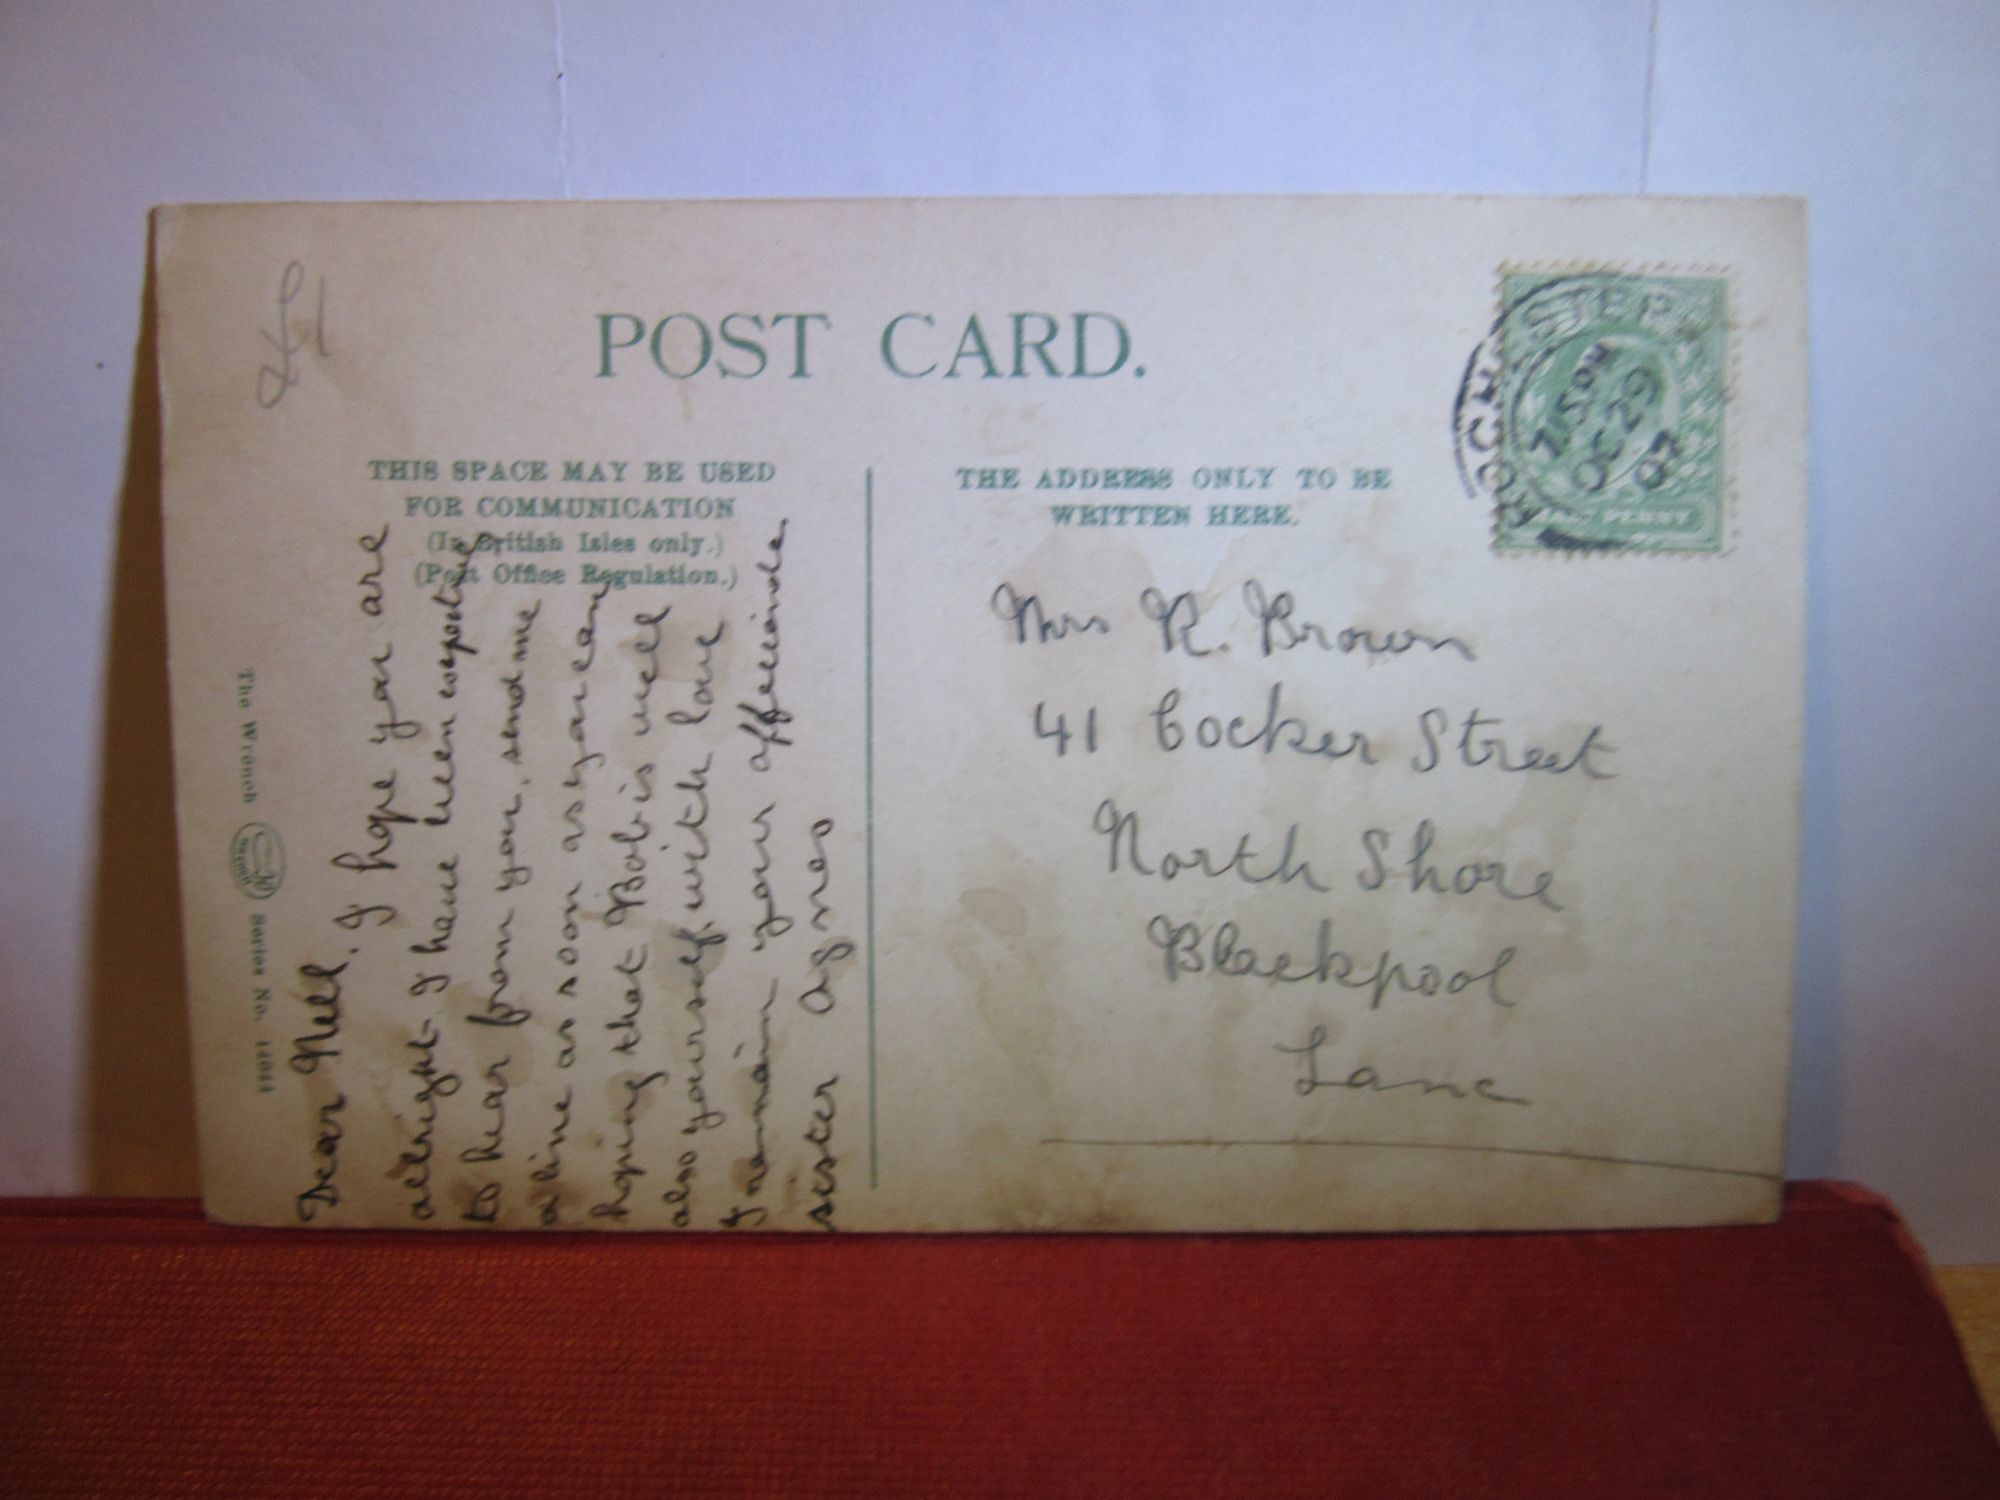 POST CARD.
THIS SPACE MAY BE USED
FOR COMMUNICATION
(In British Isles only.)
(Post Office Regulation.)
THE ADDRESS ONLY TO BE
WRITTEN HERE.
ROCHESTER
7.15 PM
OC 29
07
HALF PENNY
Dear Nell. I hope you are
allright I have been expecting
to hear from you, send me
a line as soon as you can
hoping that Bob is well
also yourself. with love
I remain your affectionate
sister Agnes
Mrs R. Brown
41 Cocker Street
North Shore
Blackpool
Lanc
The Wrench Series No. 14044